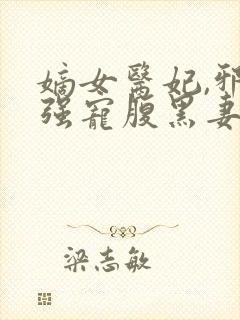 嫡女醫妃,邪
強寵腹黑妻
梁志敏